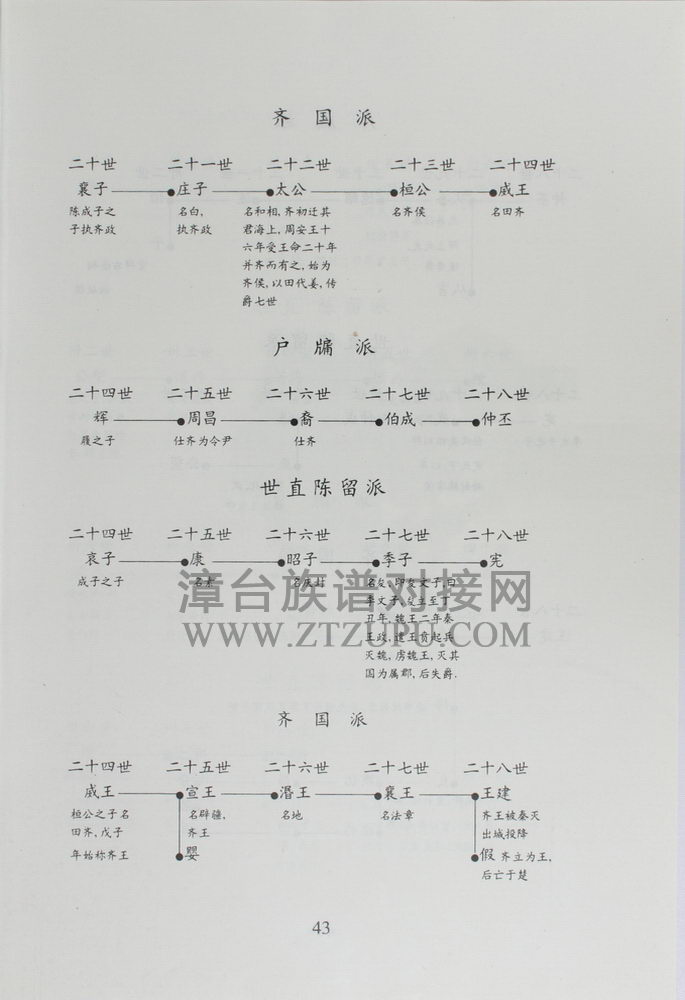 齐 国 派
二十世 二十一世 二十二世 二十三世 二十四世
襄子 庄子 太公 桓公 威王
陈成子之
子执齐政
名白,
执齐政
名和相, 齐初迁其
君海上, 周安王十
六年受王命二十年
并齐而有之, 始为
齐侯, 以田代姜, 传
爵七世
名齐侯
名田齐
户 牖 派
二十四世 二十五世 二十六世 二十七世 二十八世
辉 周昌 裔 伯成 仲丕
履之子
仕齐为令尹
仕齐
世直陈留派
二十四世 二十五世 二十六世 二十七世 二十八世
哀子 康 昭子 季子 宪
成子之子
名素
名庆封
名友, 即友文子, 曰
季文子, 友立至丁
丑年, 魏王二年秦
王政, 遣王贲起兵
灭魏, 虏魏王, 灭其
国为属郡, 后失爵.
漳台族谱对接网
WWW.ZTZUPU.COM
齐 国 派
二十四世 二十五世 二十六世 二十七世 二十八世
威王 宣王 湣王 襄王 王建
桓公之子名
田齐, 戊子
年始称齐王
名辟疆,
齐王
婴
名地
名法章
齐王被秦灭
出城投降
假 齐立为王,
后亡于楚
43